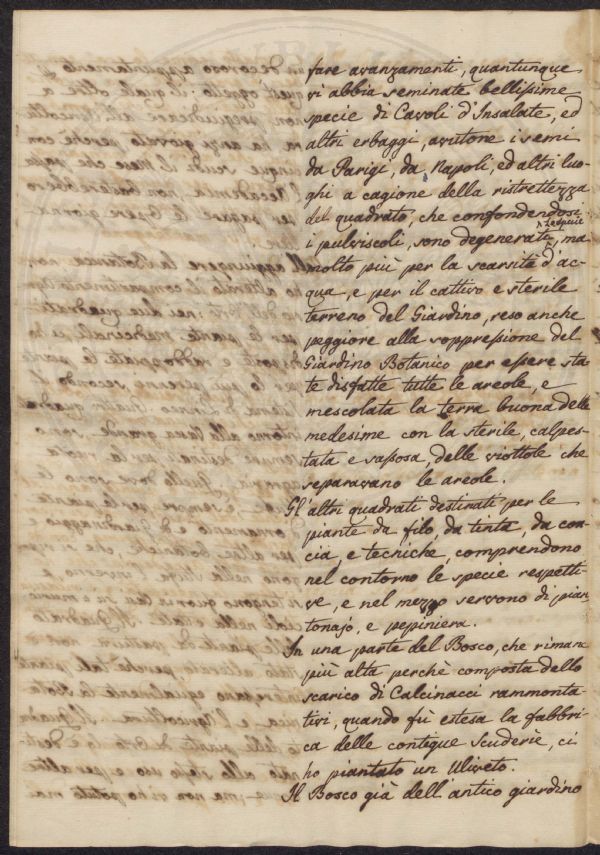 fare avanzamenti, quantunque
vi abbia seminate bellissime
specie di Cavoli d'Insalate, ed
altri erbaggi, avutone i semi
da Parigi, da Napoli, ed altri luo-
ghi a cagione della ristrettezza
del quadrato, che confondendosi
i pulviscoli, sono degenerate le specie, ma
molto più per la scarsità d'ac-
qua, e per il cattivo e sterile
terreno del Giardino, reso anche
peggiore alla soppressione del
Giardino Botanico per essere sta-
te disfatte tutte le areole, e
mescolata la terra buona delle
medesime con la sterile, calpes-
tata e sassosa, delle viottole che
separavano le areole.
Gl'altri quadrati destinati per le
piante da filo, da tinta, da con-
cia, e tecniche, comprendono
nel contorno le specie respetti-
ve, e nel mezzo servono di pian-
tonajo, e pepiniera.
In una parte del Bosco, che rimane
più alta perchè composta dello
scarico di Calcinacci rammonta-
tivi, quando fù estesa la fabbri-
ca delle contigue Scuderie, ci
ho piantato un Uliveto.
Il Bosco già dell'antico giardino